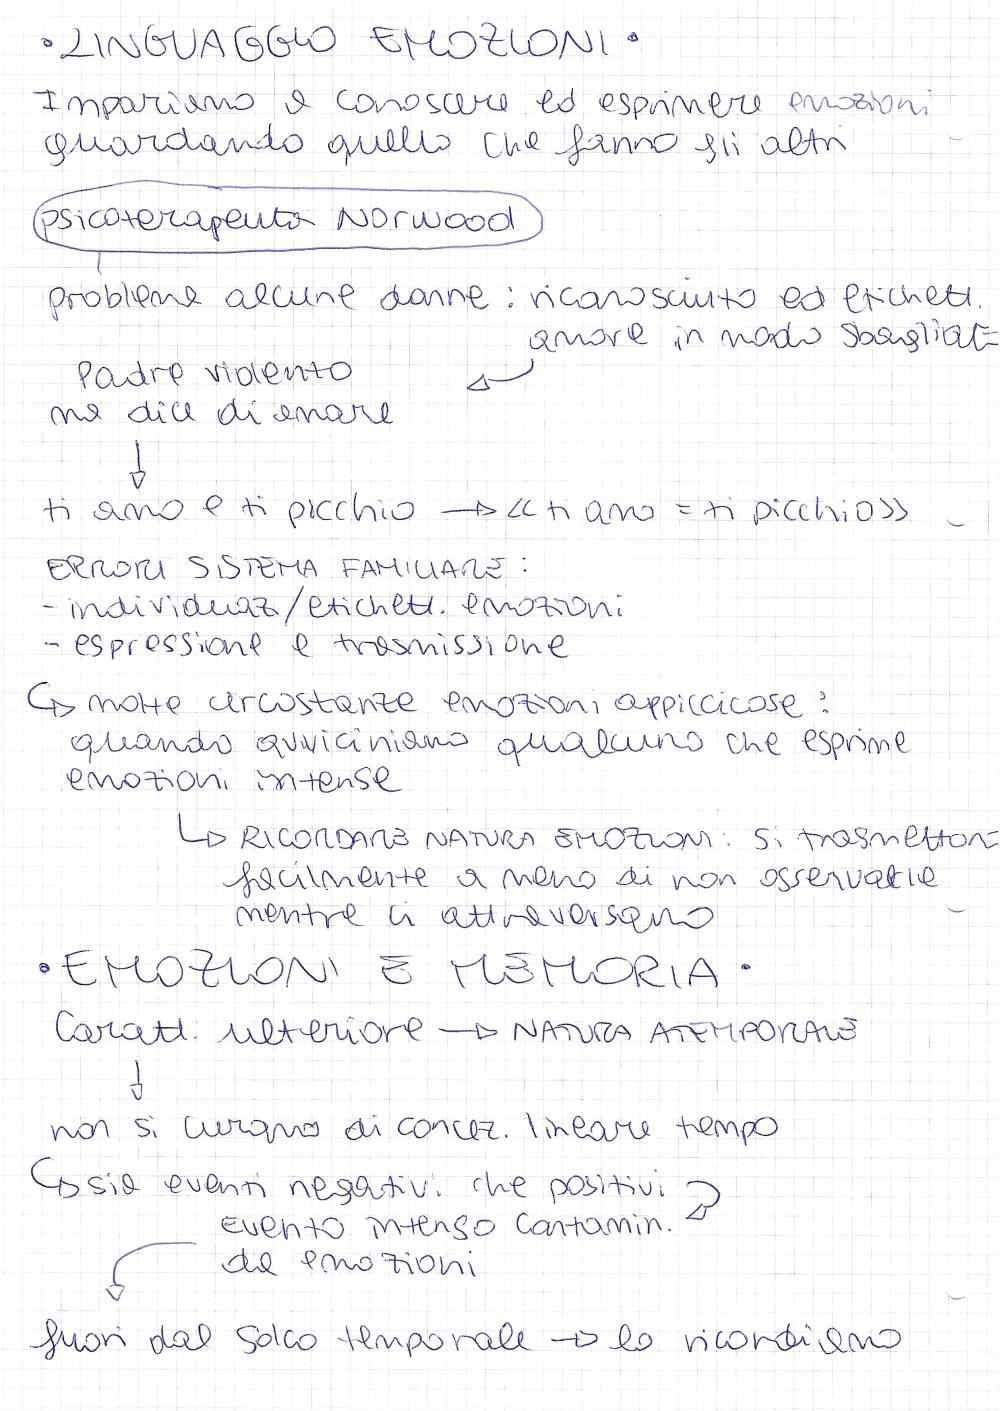 • LINGUAGGIO EMOZIONI •
Impariamo a conoscere ed esprimere emozioni
guardando quello che fanno gli altri
psicoterapeuta Norwood
problema alcune donne : riconosciuto ed etichett.
amore in modo sbagliat
Padre violento
ma dice di amare
ti amo e ti picchio → << ti amo = ti picchio>>
ERRORI SISTEMA FAMILIARE :
- individuaz/etichett. emozioni
- espressione e trasmissione
↳ molte circostanze emozioni appiccicose :
quando avviciniamo qualcuno che esprime
emozioni intense
↳ RICORDARE NATURA EMOZIONI : si trasmetton
facilmente a meno di non osservarle
mentre ci attraversano
• EMOZIONI E MEMORIA •
Caratt. ulteriore → NATURA ATEMPORALE
non si curano di concez. lineare tempo
↳ sia eventi negativi che positivi
evento intenso contamin.
da emozioni
fuori dal solco temporale → lo ricordiamo